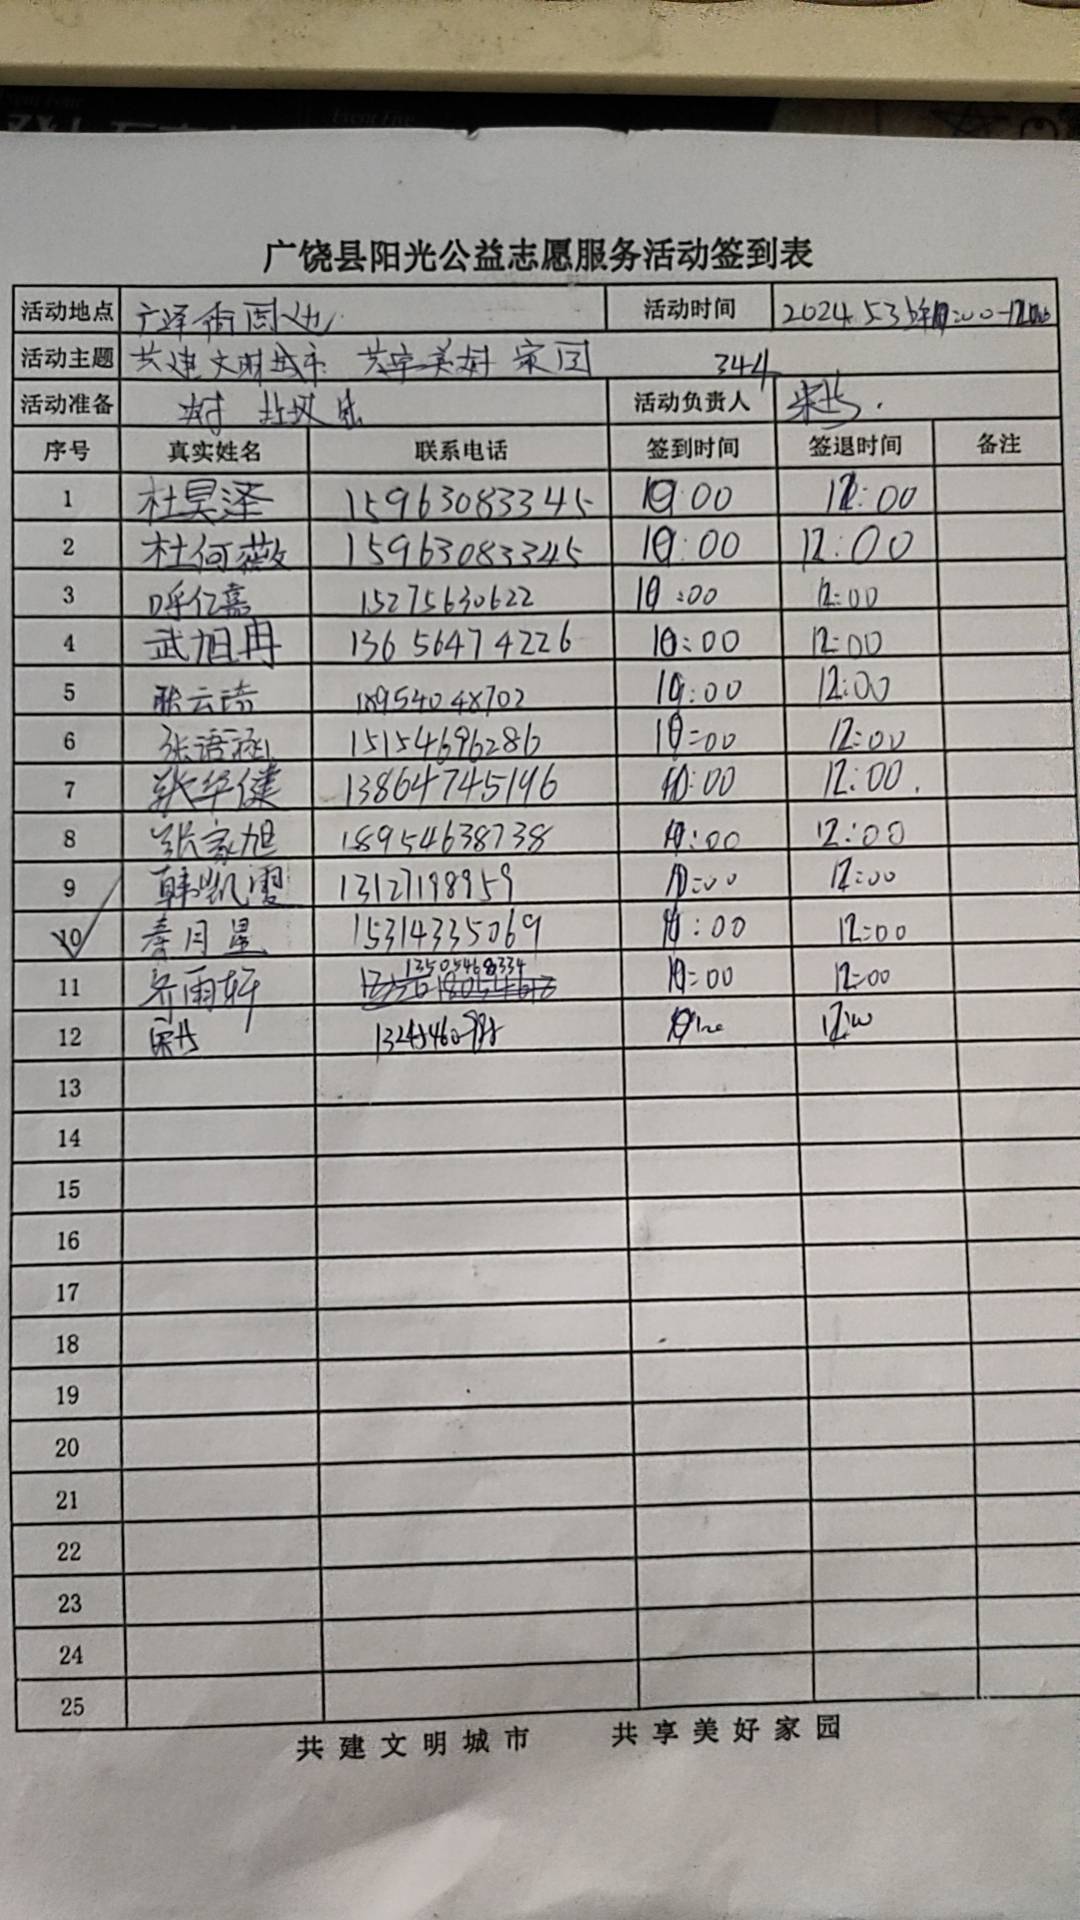 广饶县阳光公益志愿服务活动签到表
活动地点 广泽街周边 活动时间 2024.5.3
活动主题 共建文明城市 共享美好家园 344
活动准备 垃圾 活动负责人
序号 真实姓名 联系电话 签到时间 签退时间 备注
1 杜昊泽 15963083345 10:00 12:00
2 杜何薇 15963083345 10:00 12:00
3 呼亿嘉 15275630622 10:00 12:00
4 武旭冉 13656474226 10:00 12:00
5 云琦 18954048702 10:00 12:00
6 张语涵 15154696286 10:00 12:00
7 张华健 13864745196 10:00 12:00
8 张家旭 18954638738 10:00 12:00
9 韩凯雯 13127198959 10:00 12:00
10 秦月星 15314335069 10:00 12:00
11 雨轩 13505468334 10:00 12:00
12 12:00
13
14
15
16
17
18
19
20
21
22
23
24
25
共建文明城市 共享美好家园